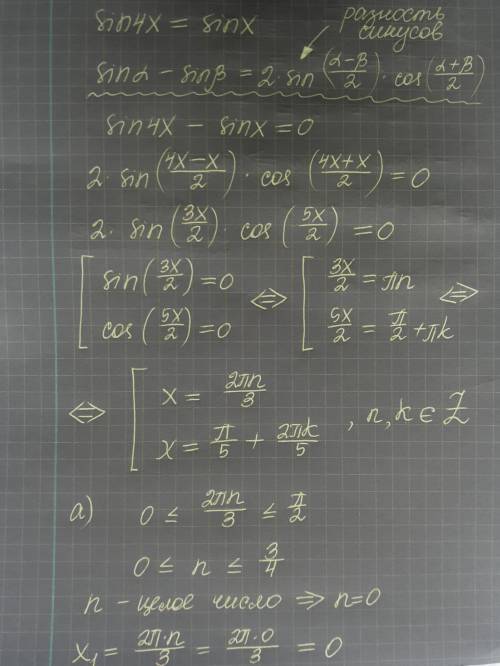 sin4x = sinx
разность
синусов
sinα − sinβ = 2·sin(α−β/2)·cos(α+β/2)
sin4x − sinx = 0
2·sin(4x−x/2)·cos(4x+x/2) = 0
2·sin(3x/2)·cos(5x/2) = 0
[ sin(3x/2) = 0 ⇔ [ 3x/2 = πn ⇔
cos(5x/2) = 0 5x/2 = π/2 + πk
⇔ [ x = 2πn/3
x = π/5 + 2πk/5 , n, k ∈ Z
а) 0 ≤ 2πn/3 ≤ π/2
0 ≤ n ≤ 3/4
n − целое число ⇒ n=0
x₁ = 2π·n/3 = 2π·0/3 = 0